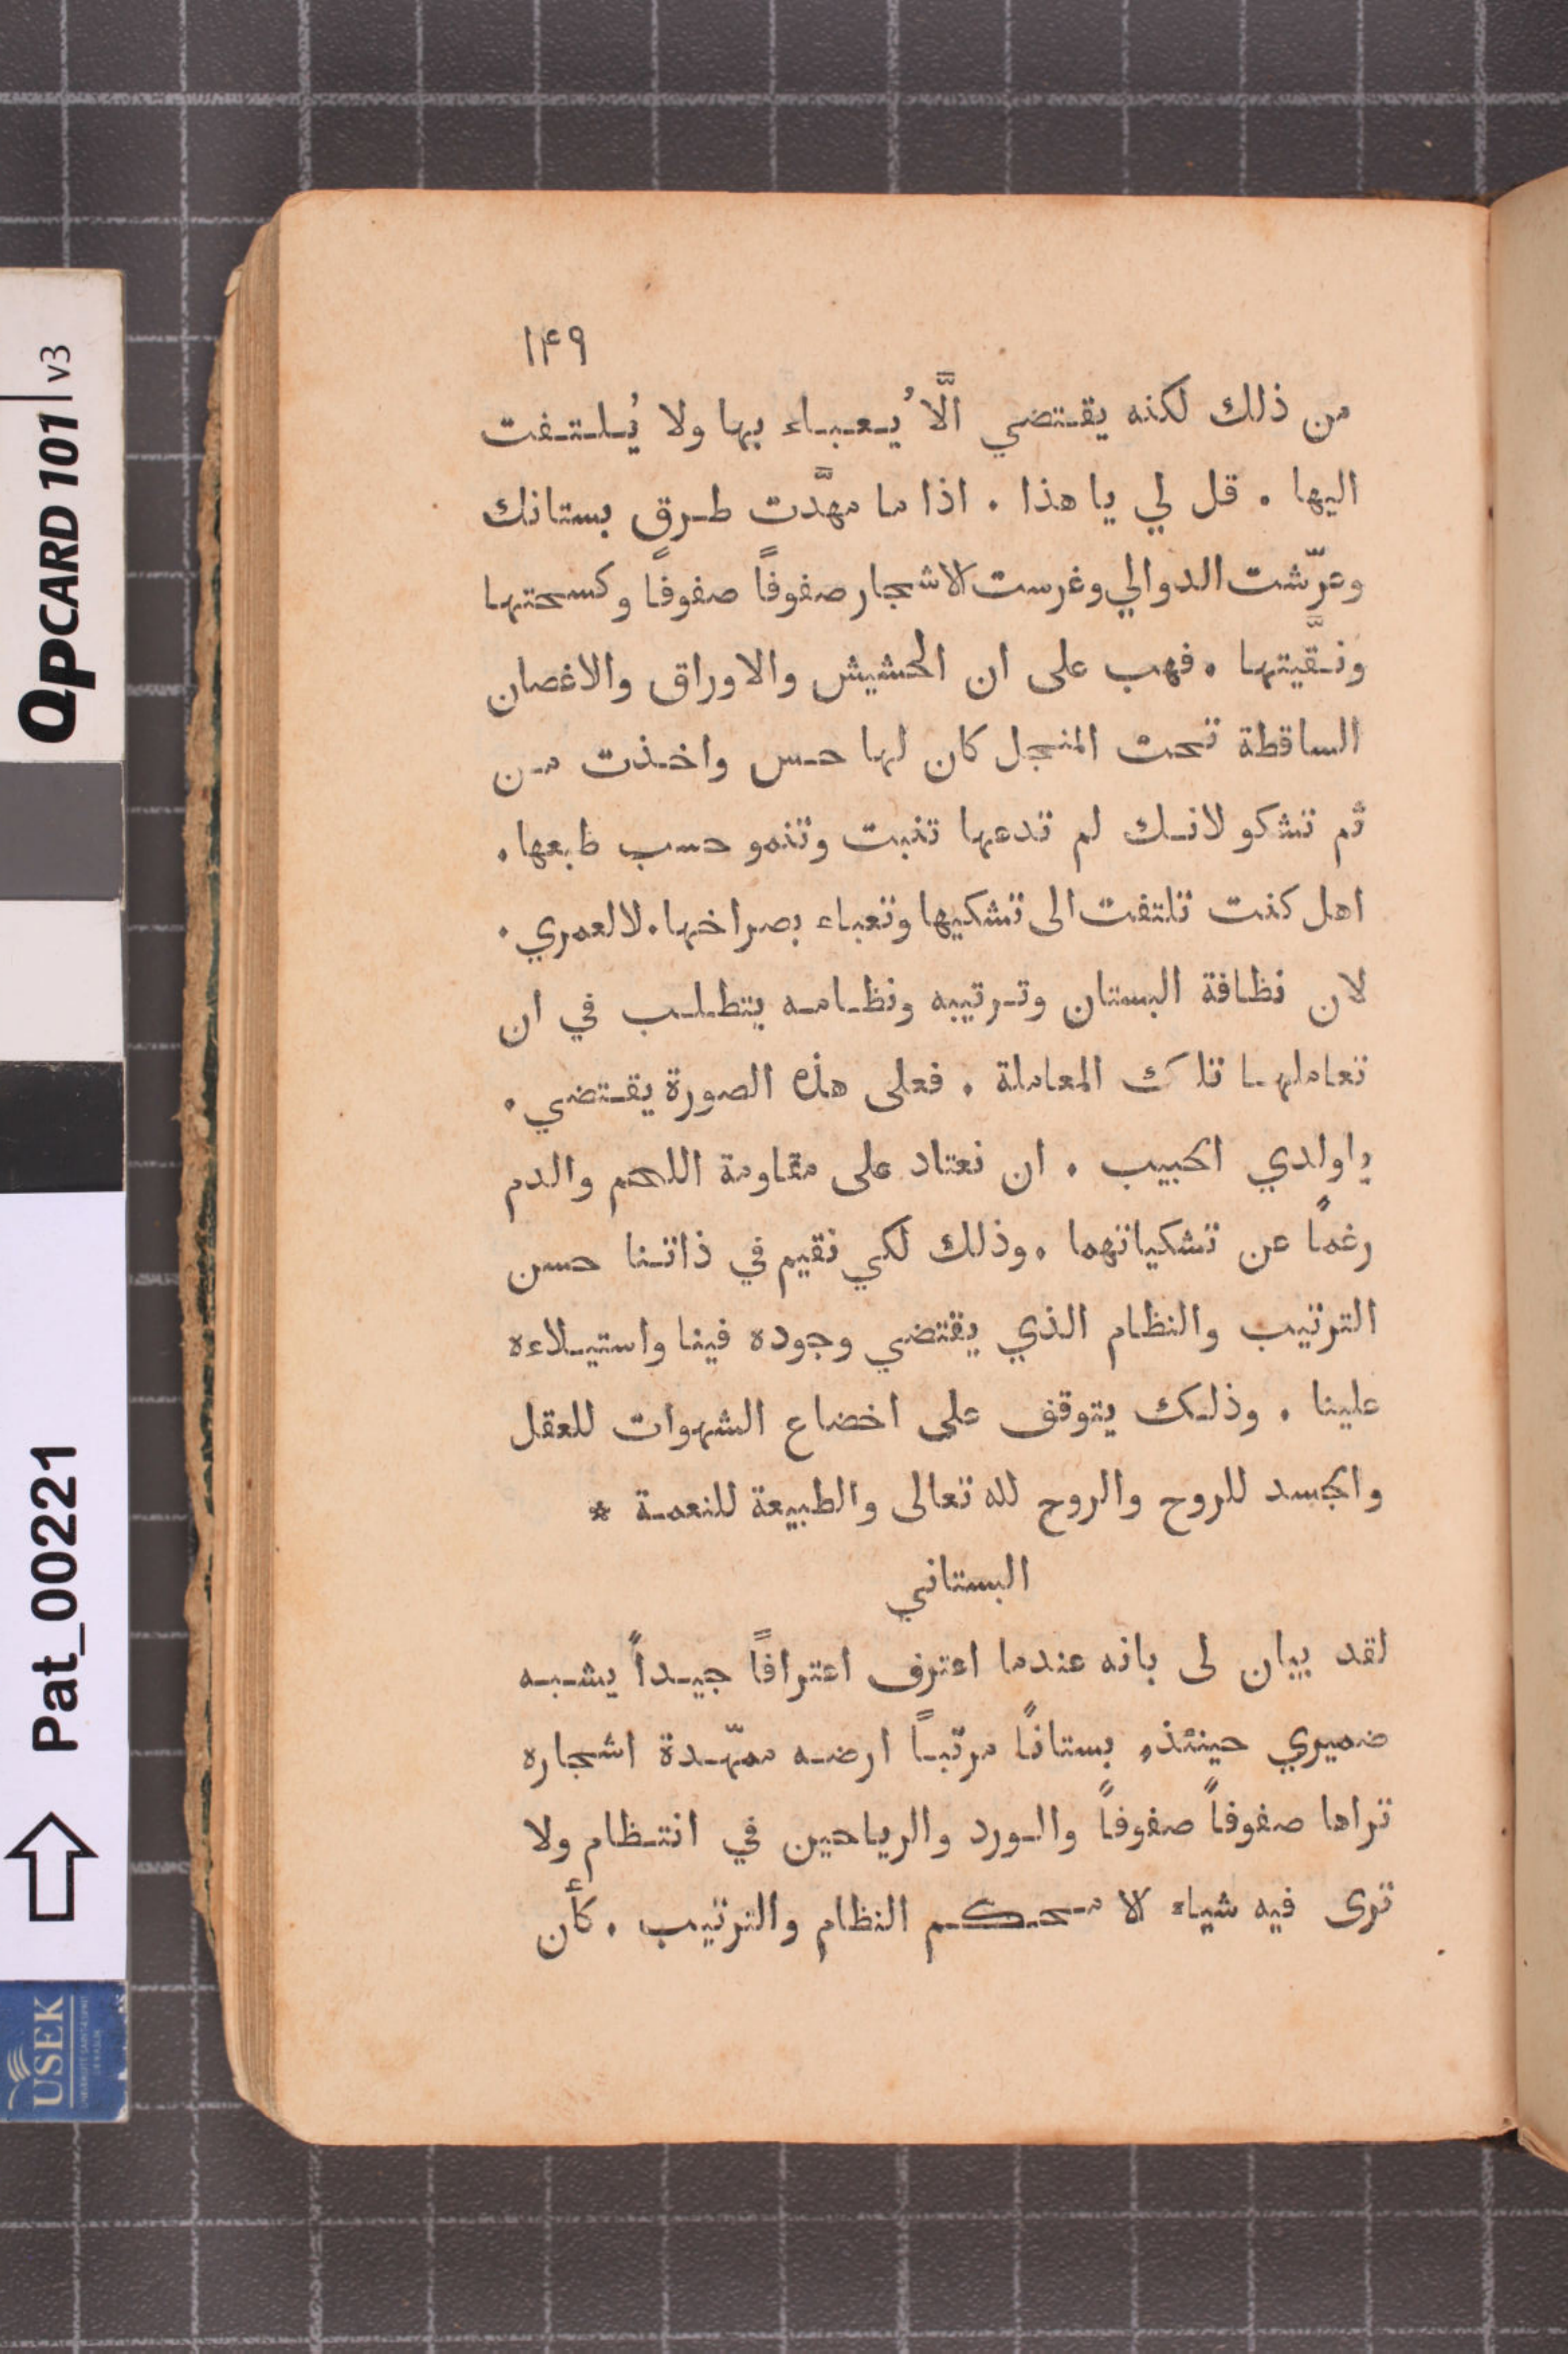 ١٤٩
من ذلك لكنه يقتضي الَّا يُعباء بها ولا يُلتفت
اليها . قل لي يا هذا . اذا ما مهَّدت طرق بستانك
وعرّشت الدوالي وغرست الاشجار صفوفًا صفوفًا وكسحتها
ونقَّيتها . فهب على ان الحشيش والاوراق والاغصان
الساقطة تحت المنجل كان لها حس واخذت من
ثم تشكو لانك لم تدعها تنبت وتنمو حسب طبعها .
اهل كنت تلتفت الى تشكيها وتعباء بصراخها . لا لعمري .
لان نظافة البستان وترتيبه ونظامه يتطلب في ان
تعاملها تلك المعاملة . فعلى هذه الصورة يقتضي .
يا ولدي الحبيب . ان نعتاد على مقاومة اللحم والدم
رغمًا عن تشكياتهما . وذلك لكي نقيم في ذاتنا حسن
الترتيب والنظام الذي يقتضي وجوده فينا واستيلاءه
علينا . وذلك يتوقف على اخضاع الشهوات للعقل
والجسد للروح والروح لله تعالى والطبيعة للنعمة *
البستاني
لقد يبان لى بانه عندما اعترف اعترافًا جيدًا يشبه
ضميري حينئذٍ بستانًا مرتبًا ارضه ممهّدة اشجاره
تراها صفوفًا صفوفًا والورد والرياحين في انتظام ولا
ترى فيه شياء الا محكم النظام والترتيب . كأن
QPCARD 101 v3
Pat_00221
USEK